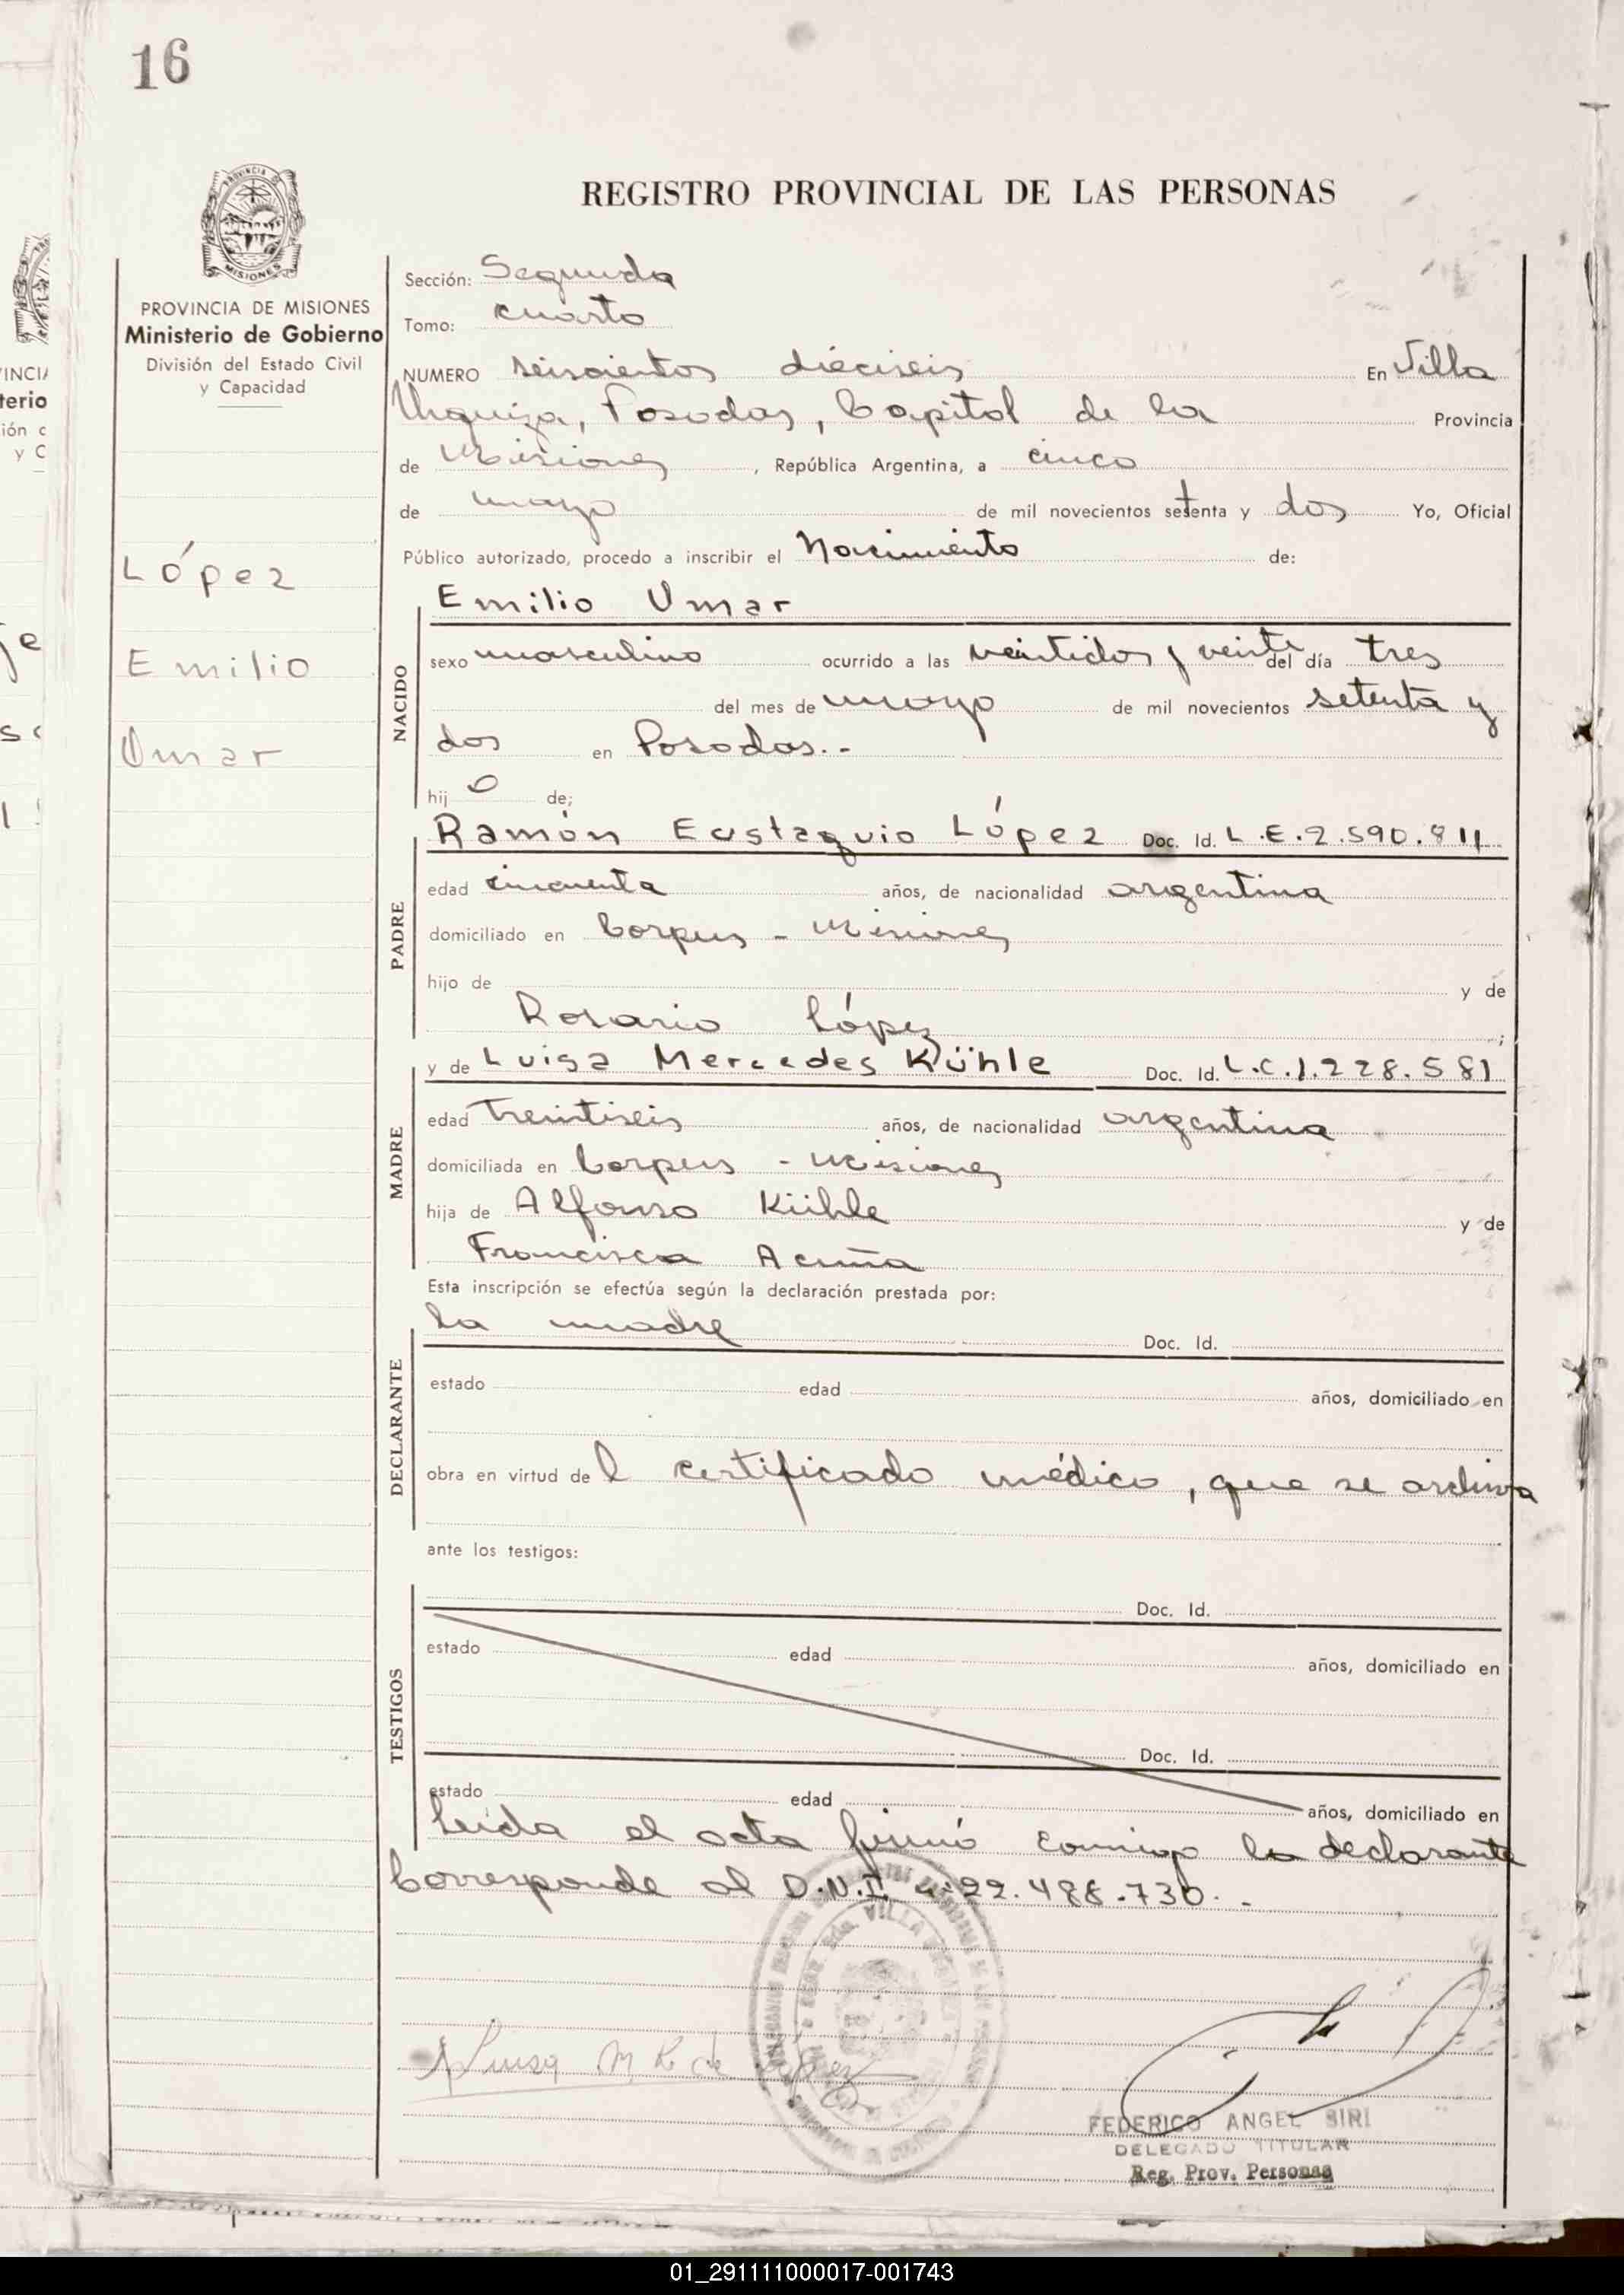 16
PROVINCIA
MISIONES
REGISTRO PROVINCIAL DE LAS PERSONAS
PROVINCIA DE MISIONES
Ministerio de Gobierno
División del Estado Civil
y Capacidad
López
Emilio
Omar
Sección: Segunda
Tomo: cuarto
NUMERO seiscientos dieciseis En Villa
Urquiza, Posadas, Capital de la Provincia
de Misiones, República Argentina, a cinco
de mayo de mil novecientos setenta y dos Yo, Oficial
Público autorizado, procedo a inscribir el Nacimiento de:
NACIDO
Emilio Omar
sexo masculino ocurrido a las veintidos y veinte del día tres
del mes de mayo de mil novecientos setenta y
dos en Posadas.-
hijo de;
PADRE
Ramón Eustaquio López Doc. Id. L.E.2.590.811
edad cincuenta años, de nacionalidad argentina
domiciliado en Corpus - Misiones
hijo de y de
Rosario López ;
MADRE
y de Luisa Mercedes Kühle Doc. Id. L.C.1.228.581
edad treintiseis años, de nacionalidad argentina
domiciliada en Corpus - Misiones
hija de Alfonso Kühle y de
Francisca Acuña
Esta inscripción se efectúa según la declaración prestada por:
DECLARANTE
la madre Doc. Id.
estado edad años, domiciliado en
obra en virtud del certificado médico, que se archiva
ante los testigos:
TESTIGOS
Doc. Id.
estado edad años, domiciliado en
Doc. Id.
estado edad años, domiciliado en
Leída el acta firmó conmigo la declarante
Corresponde al D.N.I. n: 22.488.730.-
Luisa M K de López
FEDERICO ANGEL SIRI
DELEGADO TITULAR
Reg. Prov. Personas
01_291111000017-001743